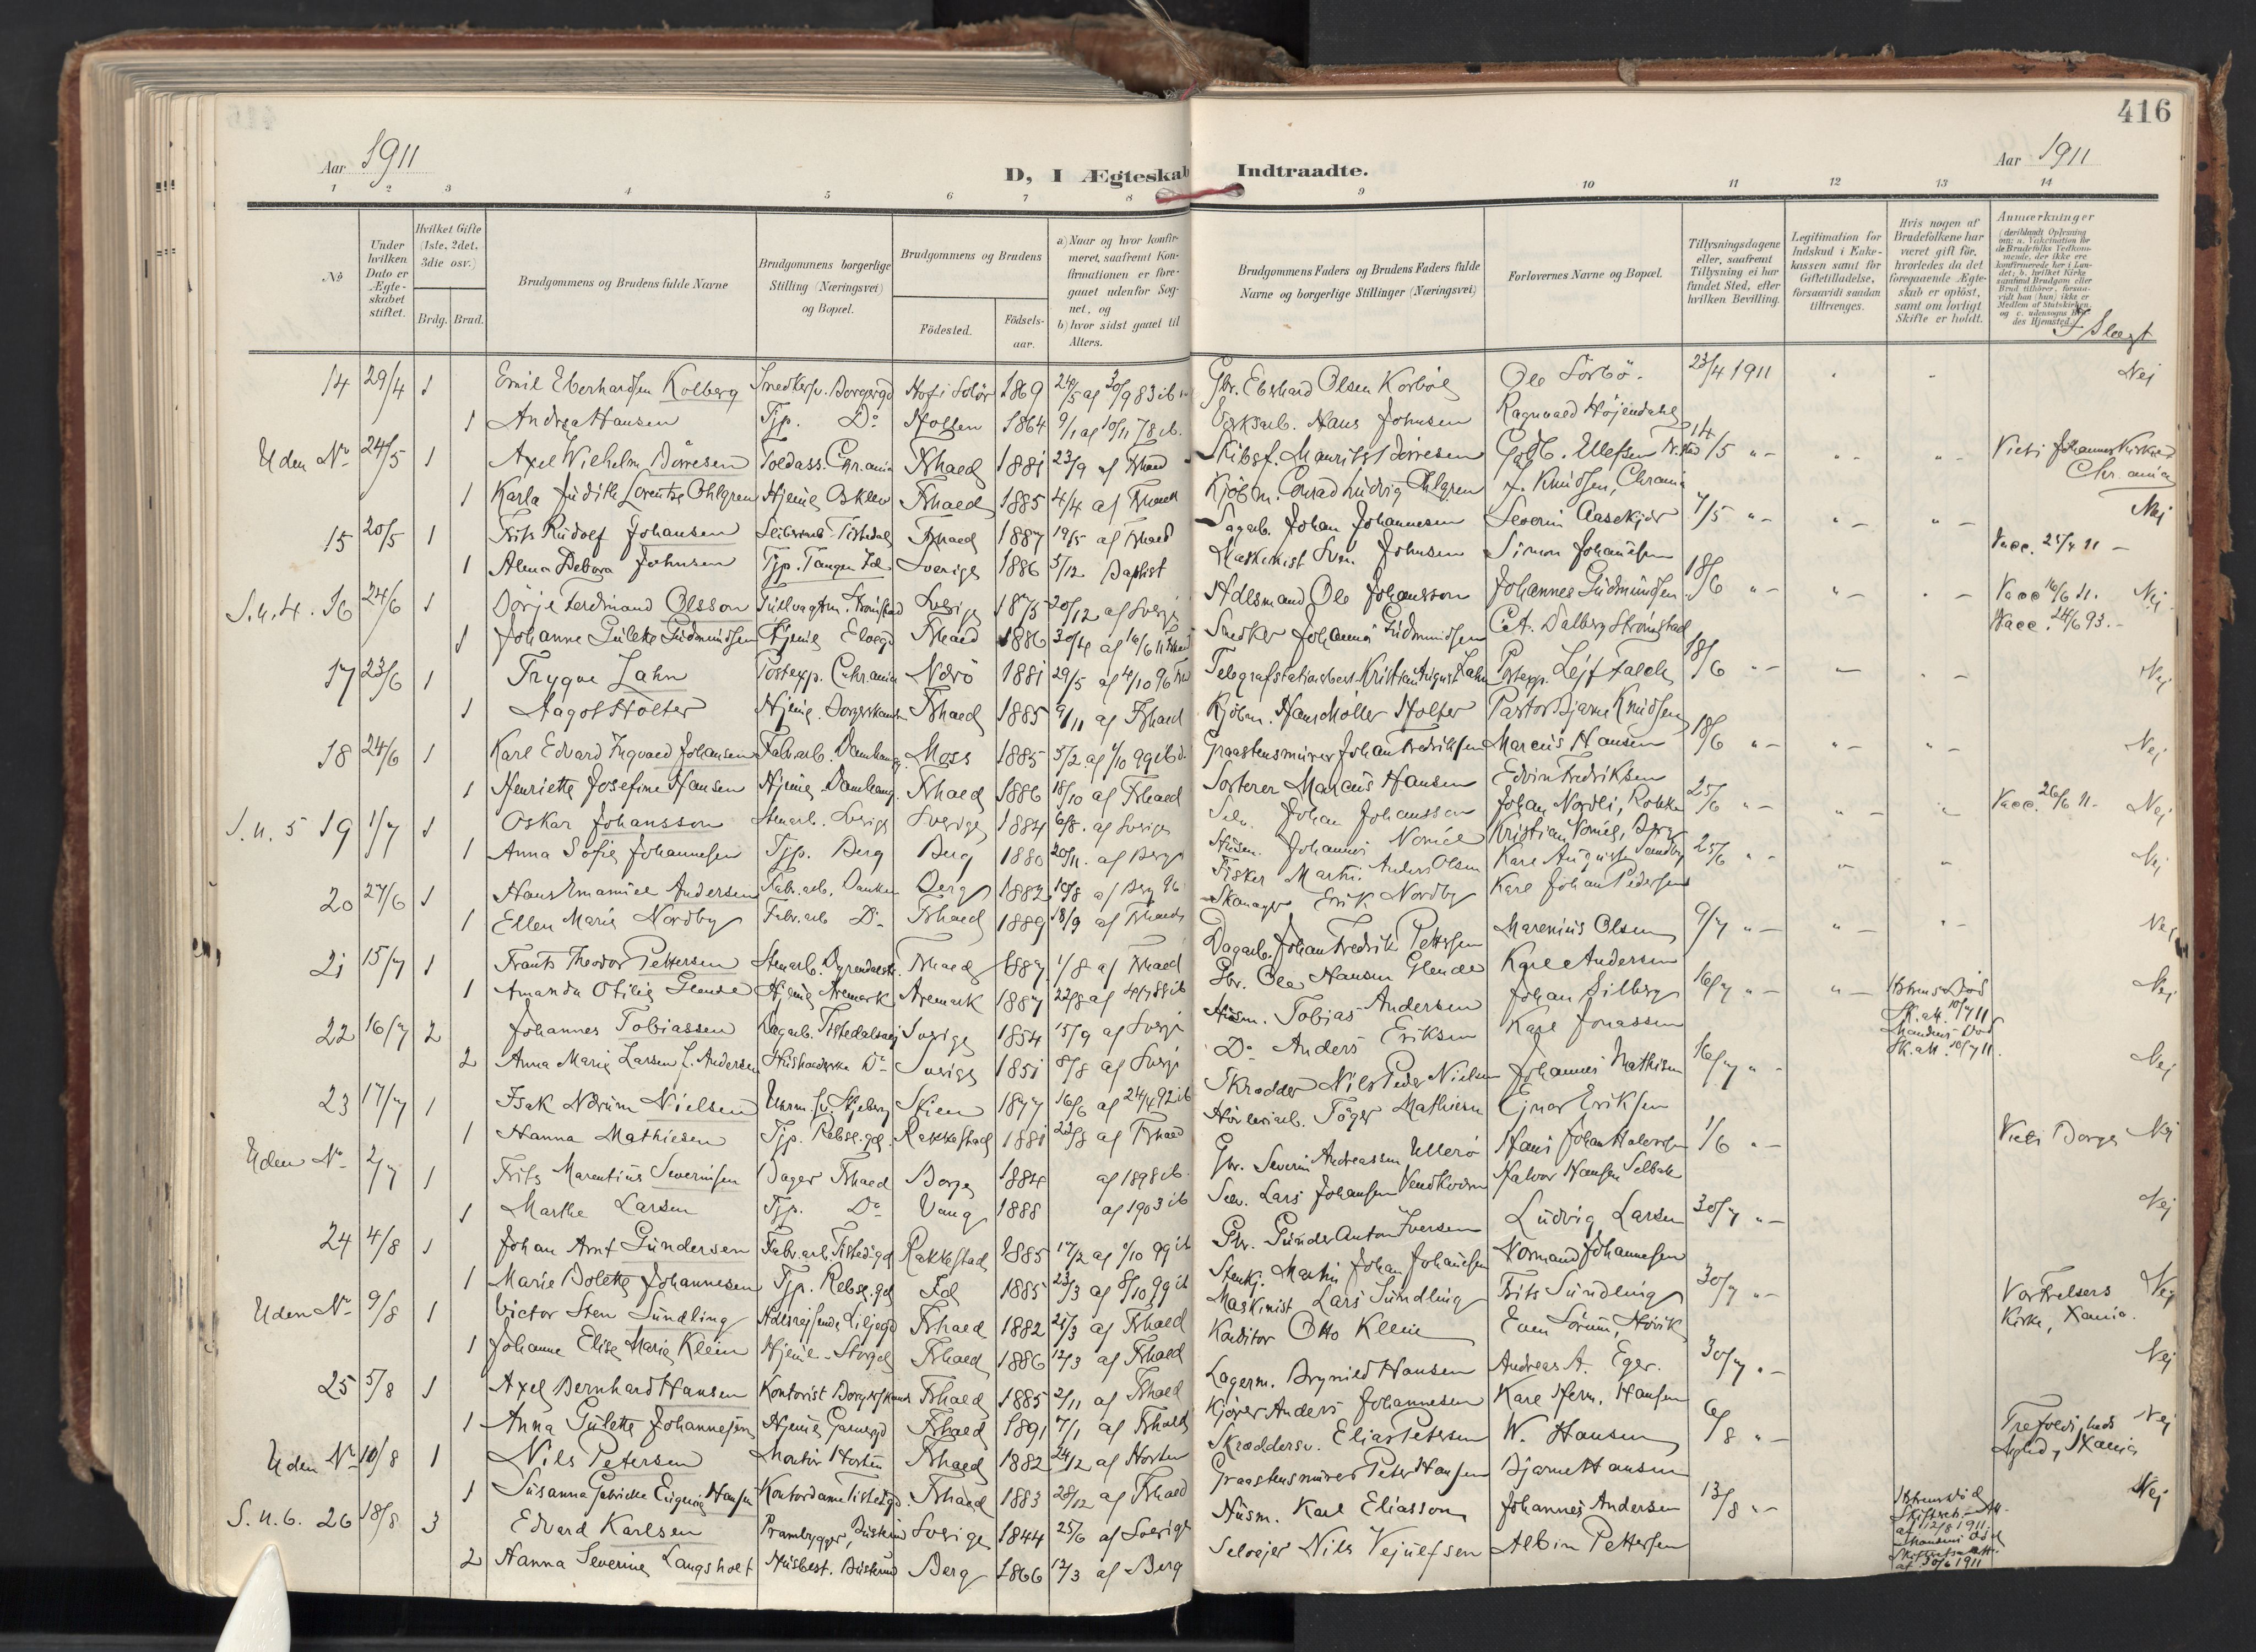 416
Aar 1911
Aar 1911
D, I Ægteskab Indtraadte.
1 2 3 4 5 6 7 8 9 10 11 12 13 14
No
Under hvilken Dato er Ægteskabet stiftet.
Hvilket Gifte (1ste, 2det, 3die osv.)
Brdg. Brud.
Brudgommens og Brudens fulde Navne
Brudgommens borgerlige Stilling (Næringsvei) og Bopæl.
Brudgommens og Brudens
Födested.
Födsels-aar.
a) Naar og hvor konfirmeret, saafremt Konfirmationen er foregaaet udenfor Sognet, og
b) hvor sidst gaaet til Alters.
Brudgommens Faders og Brudens Faders fulde Navne og borgerlige Stillinger (Næringsvei)
Forlovernes Navne og Bopæl.
Tillysningsdagene eller, saafremt Tillysning ei har fundet Sted, efter hvilken Bevilling.
Legitimation for Indskud i Enkekassen samt for Giftetilladelse, forsaavidt saadan tiltrænges.
Hvis nogen af Brudefolkene har været gift för, hvorledes da det foregaaende Ægteskab er oplöst, samt om lovligt Skifte er holdt.
Anmærkninger (deriblandt Oplysning om: a. Vakcination for de Brudefolks Vedkommende, der ikke ere konfirmerede her i Landet; b. hvilket Kirkesamfund Brudgom eller Brud tilhörer, forsaavidt han (hun) ikke er Medlem af Statskirken, og c. udensogns Brudes Hjemsted.)
I Slægt
14 29/4 1 Emil Eberhardsen Kolberg Snedkersv. Borgergd Hof i Solör 1869 Gbr. Eberhard Olsen Korböl Ole Sörbö. 23/4 1911 Nej
1 Andrea Hansen Tjp. Do Holsen 1864 Hans Johnsen Ragnvald Höjendahl
Uden No 24/5 1 Axel Wilhelm Dörresen Toldass. Chr.ania Frhald 1881 23/9 af Frhald Skibsf. Maurits Dörresen Gotb. Ellefsen 14/5 " - Viet i Johannes Kirken Chr.ania
1 Karla Judith Lorentze Ohlgren Hjeme Osklev Frhald 1885 4/4 af Frhald Kjöbm. Conrad Ludvig Ohlgren J. Knudsen, Chrania
15 20/5 1 Frits Rudolf Johansen Tistedal Frhald 1887 19/5 af Frhald Sagarb. Johan Johannesen Severin Aasekjær 7/5 " - Nej
1 Alma Debora Johnsen Tjp. Tangen Id Sverige 1886 5/12 Baptist Maskinist Sven Johnsen Simon Johansen Vacc. 25/4 11 -
S.u.4. 16 24/6 1 Börje Ferdinand Olsson Tullvagtm. Strömstad Sverige 1875 20/12 af Sverige Adlsmand Ole Johansson Johannes Gudmundsen 18/6 " - Vacc 16/6 11. Nej
1 Johanne Gulette Gudmundsen Hjeme Frhald 1886 Snedker Johannes Gudmundsen C.A. Dalberg Strömstad Vacc. 24/6 93. -
17 23/6 1 Trygve Zahn Postexp. Chr.ania Nærö 1881 29/5 af 4/10 96 Telegrafstationbest. Kristian August Zahn Postexp. Lejf Falch 18/6 " - Nej
1 Aagot Holter Hjeme. Borgerskansen Frhald 1885 9/11 af Frhald Kjöbm. Hans Möller Holter Pastor Bjarne Knudsen
18 24/6 1 Karl Edvard Ingvald Johansen Fabr.arb. Damhaug. Moss 1885 5/2 af 1/10 99 ib. Graastensmurer Johan Fredriksen Marcus Hansen 18/6 " - Nej
1 Henriette Josefine Hansen Hjeme Damhaug. Frhald 1886 18/10 af Frhald Sorterer Marcus Hansen Edvin Fredriksen
S.u. 5 19 1/7 1 Oskar Johansson Stenarb. Sverige Sverige 1884 6/8. af Sverige Selv. Johan Johansson Johan Nordli, 25/6 " - Vacc. 26/6 11 - Nej
1 Anna Sofie Johannesen Tjp. Berg Berg 1880 20/11. af Berg Johannes Kristian Berg
20 27/6 1 Hans Emanuel Andersen Fabr.arb. Berg 1882 10/8 af Berg 96 Fisker Martin Anders Olsen Karl August Sandby 25/6 " - Nej
1 Ellen Marie Nordby Fabr.arb Do Frhald 1889 18/9 af Frhald Skomager Erik Nordby Karl Johan Pedersen
21 15/7 1 Frants Theodor Pettersen Stenarb. Dyrendalsb. Frhald 1887 1/8 af Frhald Dagarb. Johan Fredrik Pettersen Marenius Olsen 9/7 " - Nej
1 Amanda Otilie Glende Hjeme Aremark Aremark 1887 22/8 af Gbr. Ole Hansen Glende Karl Andersen
22 16/7 2 Johannes Tobiassen Dagarb. Tistedalsvej Sverige 1854 15/9 af Sverige Husm. Tobias Andersen Johan Silberg 16/7 " - Hstrus Död Sk.att. 10/7 11 Nej
2 Anna Marie Larsen f. Andersen Husholderske Do Sverige 1851 8/8 af Sverige Do Anders Eriksen Karl Jonassen Mandens Död Sk.att. 10/7 11.
23 17/7 1 Isak Nærum Nielsen Uhrm.sv. Skjeberg Skien 1877 16/6 af 24/4 92 ib Skrædder Nils Peder Nielsen Johannes Mathisen 16/7 " - Nej
1 Hanna Mathiesen Tjp. Rebsl.gd. Rakkestad 1881 22/8 af Frhald Höveleriarb. Töger Mathiesen Ejnar Eriksen
Uden No 2/7 1 Frits Marentius Severinsen Bager Frhald Borge 1884 af 1898 ib. Gbr. Severin Andreassen Ulleröe Hans Johan Halvorsen 1/6 " - Viet i Borge Nej
1 Marthe Larsen Tjp. Do Vang 1888 af 1903 ib Selv. Lars Johansen Halvor Hansen Selbak
24 4/8 1 Johan Arnt Gundersen Fabr.arb. Tistedgd Rakkestad 1885 17/2 af 1/10 99 ib Gbr. Gunder Anton Iversen Ludvig Larsen 30/7 " - Nej
1 Marie Bolette Johannesen Tjp. Rebsl.gd Id 1885 23/3 af 8/10 99 ib Stenhj. Martin Johan Johansen Normand Johannesen
Uden No 9/8 1 Victor Sten Sundling Hdlsrejsende Liljegd Frhald 1882 21/3 af Frhald Maskinist Lars Sundling Frits Sundling 30/7 " - Vor Frelsers Kirke, Xania. Nej
1 Johanne Elise Marie Klein Hjeme - Storgd Frhald 1886 12/3 af Frhald Konditor Otto Klein Even Sörum, Hövik
25 5/8 1 Axel Bernhard Hansen Kontorist Borgerskansen Frhald 1885 2/11 af Frhald Lagerm. Brynild Hansen Andreas A. Eger. 30/7 " - Nej
1 Anna Gulette Johannesen Hjeme Garvergd Frhald 1891 7/1 af Frhald Kjörer Anders Johannesen Karl Herm. Hansen
Uden No 10/8 1 Nils Petersen Montör Horten Frhald 1882 24/12 af Horten Skræddersv. Elias Petersen W. Hansen 6/8 " - Trefoldigheds Xania Nej
1 Susanna Gabrielle Eugenie Hansen Kontordame Tistedgd. Frhald 1883 28/12 af Frhald Graastensmurer Peter Hansen Bjarne Hansen
S.u.6. 26 18/8 3 Edvard Karlsen Prambygger, Buskrud Sverige 1844 25/6 af Sverige Husm. Karl Eliasson Johannes Andersen 13/8 " - Hstrus död Skifteatt. af 12/8 1911 Nej
2 Hanna Severine Langsholt Husbest. Buskrud Berg 1866 12/3 af Berg Selvejer Nils Vejulfsen Albin Pettersen Mandens död Skifteretsatt. af 30/6 1911